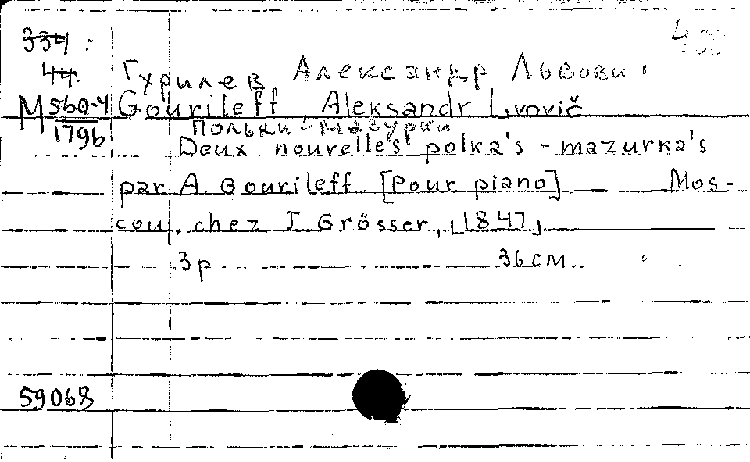 334
44.
Гурилев Александр Львови
М 560-4 Gourileff, Aleksandr Lvovič
1796 Польки-мазурки
Deux nouvelles polka's - mazurka's
par A. Gourileff. [Pour piano] Mos-
cou, chez I. Grösser, [1847]
3 p. 36 см.
59068